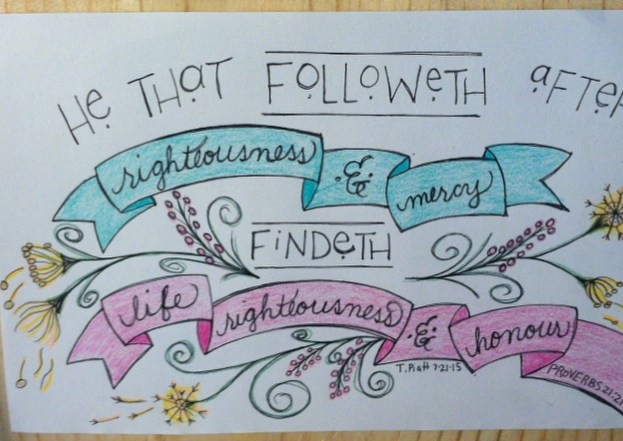 He THaT FOLLOWeTH aFTeR
righteousness & mercy
FiNDeTH
life righteousness & honour
T. Piatt 7-21-15
PROVERBS 21:21